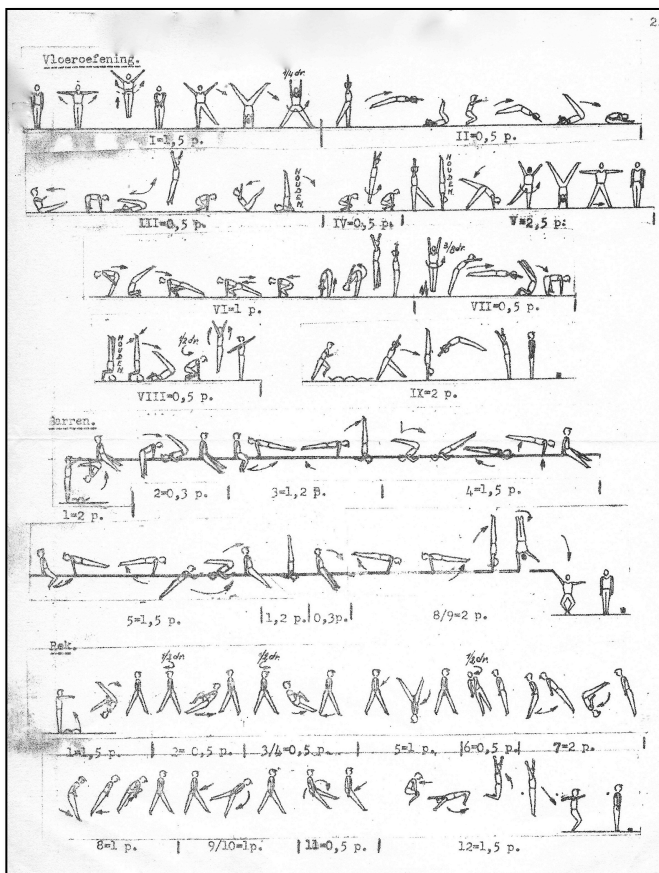 2.
Vloeroefening.
1/4 dr.
I=1,5 p. II=0,5 p.
HOUDEN.
HOUDEN.
III=0,5 p. IV=0,5 p. V=2,5 p.
3/8 dr.
VI=1 p. VII=0,5 p.
HOUDEN.
1/2 dr.
VIII=0,5 p. IX=2 p.
Barren.
1=2 p. 2=0,3 p. 3=1,2 p. 4=1,5 p.
5=1,5 p. 1,2 p. 0,3p. 8/9=2 p.
Rek.
1/2 dr. 1/2 dr. 1/2 dr.
1=1,5 p. 2=0,5 p. 3/4=0,5 p. 5=1 p. 6=0,5 p. 7=2 p.
8=1 p. 9/10=1p. 11=0,5 p. 12=1,5 p.